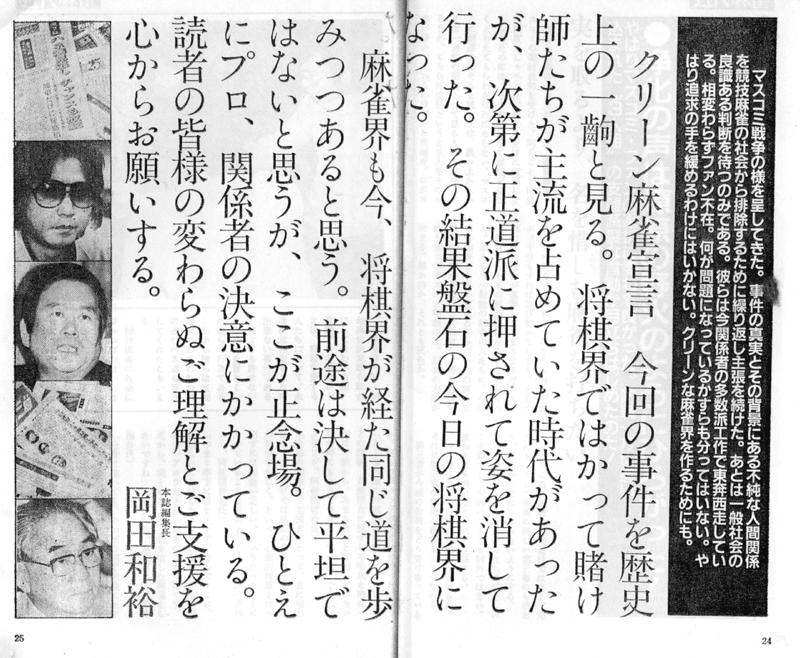 マスコミ戦争の様を呈してきた。事件の真実とその背景にある不純な人間関係
を競技麻雀の社会から排除するために繰り返し主張を続けた。あとは一般社会の
良識ある判断を待つのみである。彼らは今関係者の多数派工作で東奔西走してい
る。相変わらずファン不在。何が問題になっているかすらも分ってはいない。や
はり追求の手を緩めるわけにはいかない。クリーンな麻雀界を作るためにも。
クリーン麻雀宣言　今回の事件を歴史
上の一齣と見る。将棋界ではかつて賭け
師たちが主流を占めていた時代があった
が、次第に正道派に押されて姿を消して
行った。その結果盤石の今日の将棋界に
なった。
麻雀界も今、将棋界が経た同じ道を歩
みつつあると思う。前途は決して平坦で
はないと思うが、ここが正念場。ひとえ
にプロ、関係者の決意にかかっている。
読者の皆様の変わらぬご理解とご支援を
心からお願いする。
本誌編集長
岡田和裕
25
24